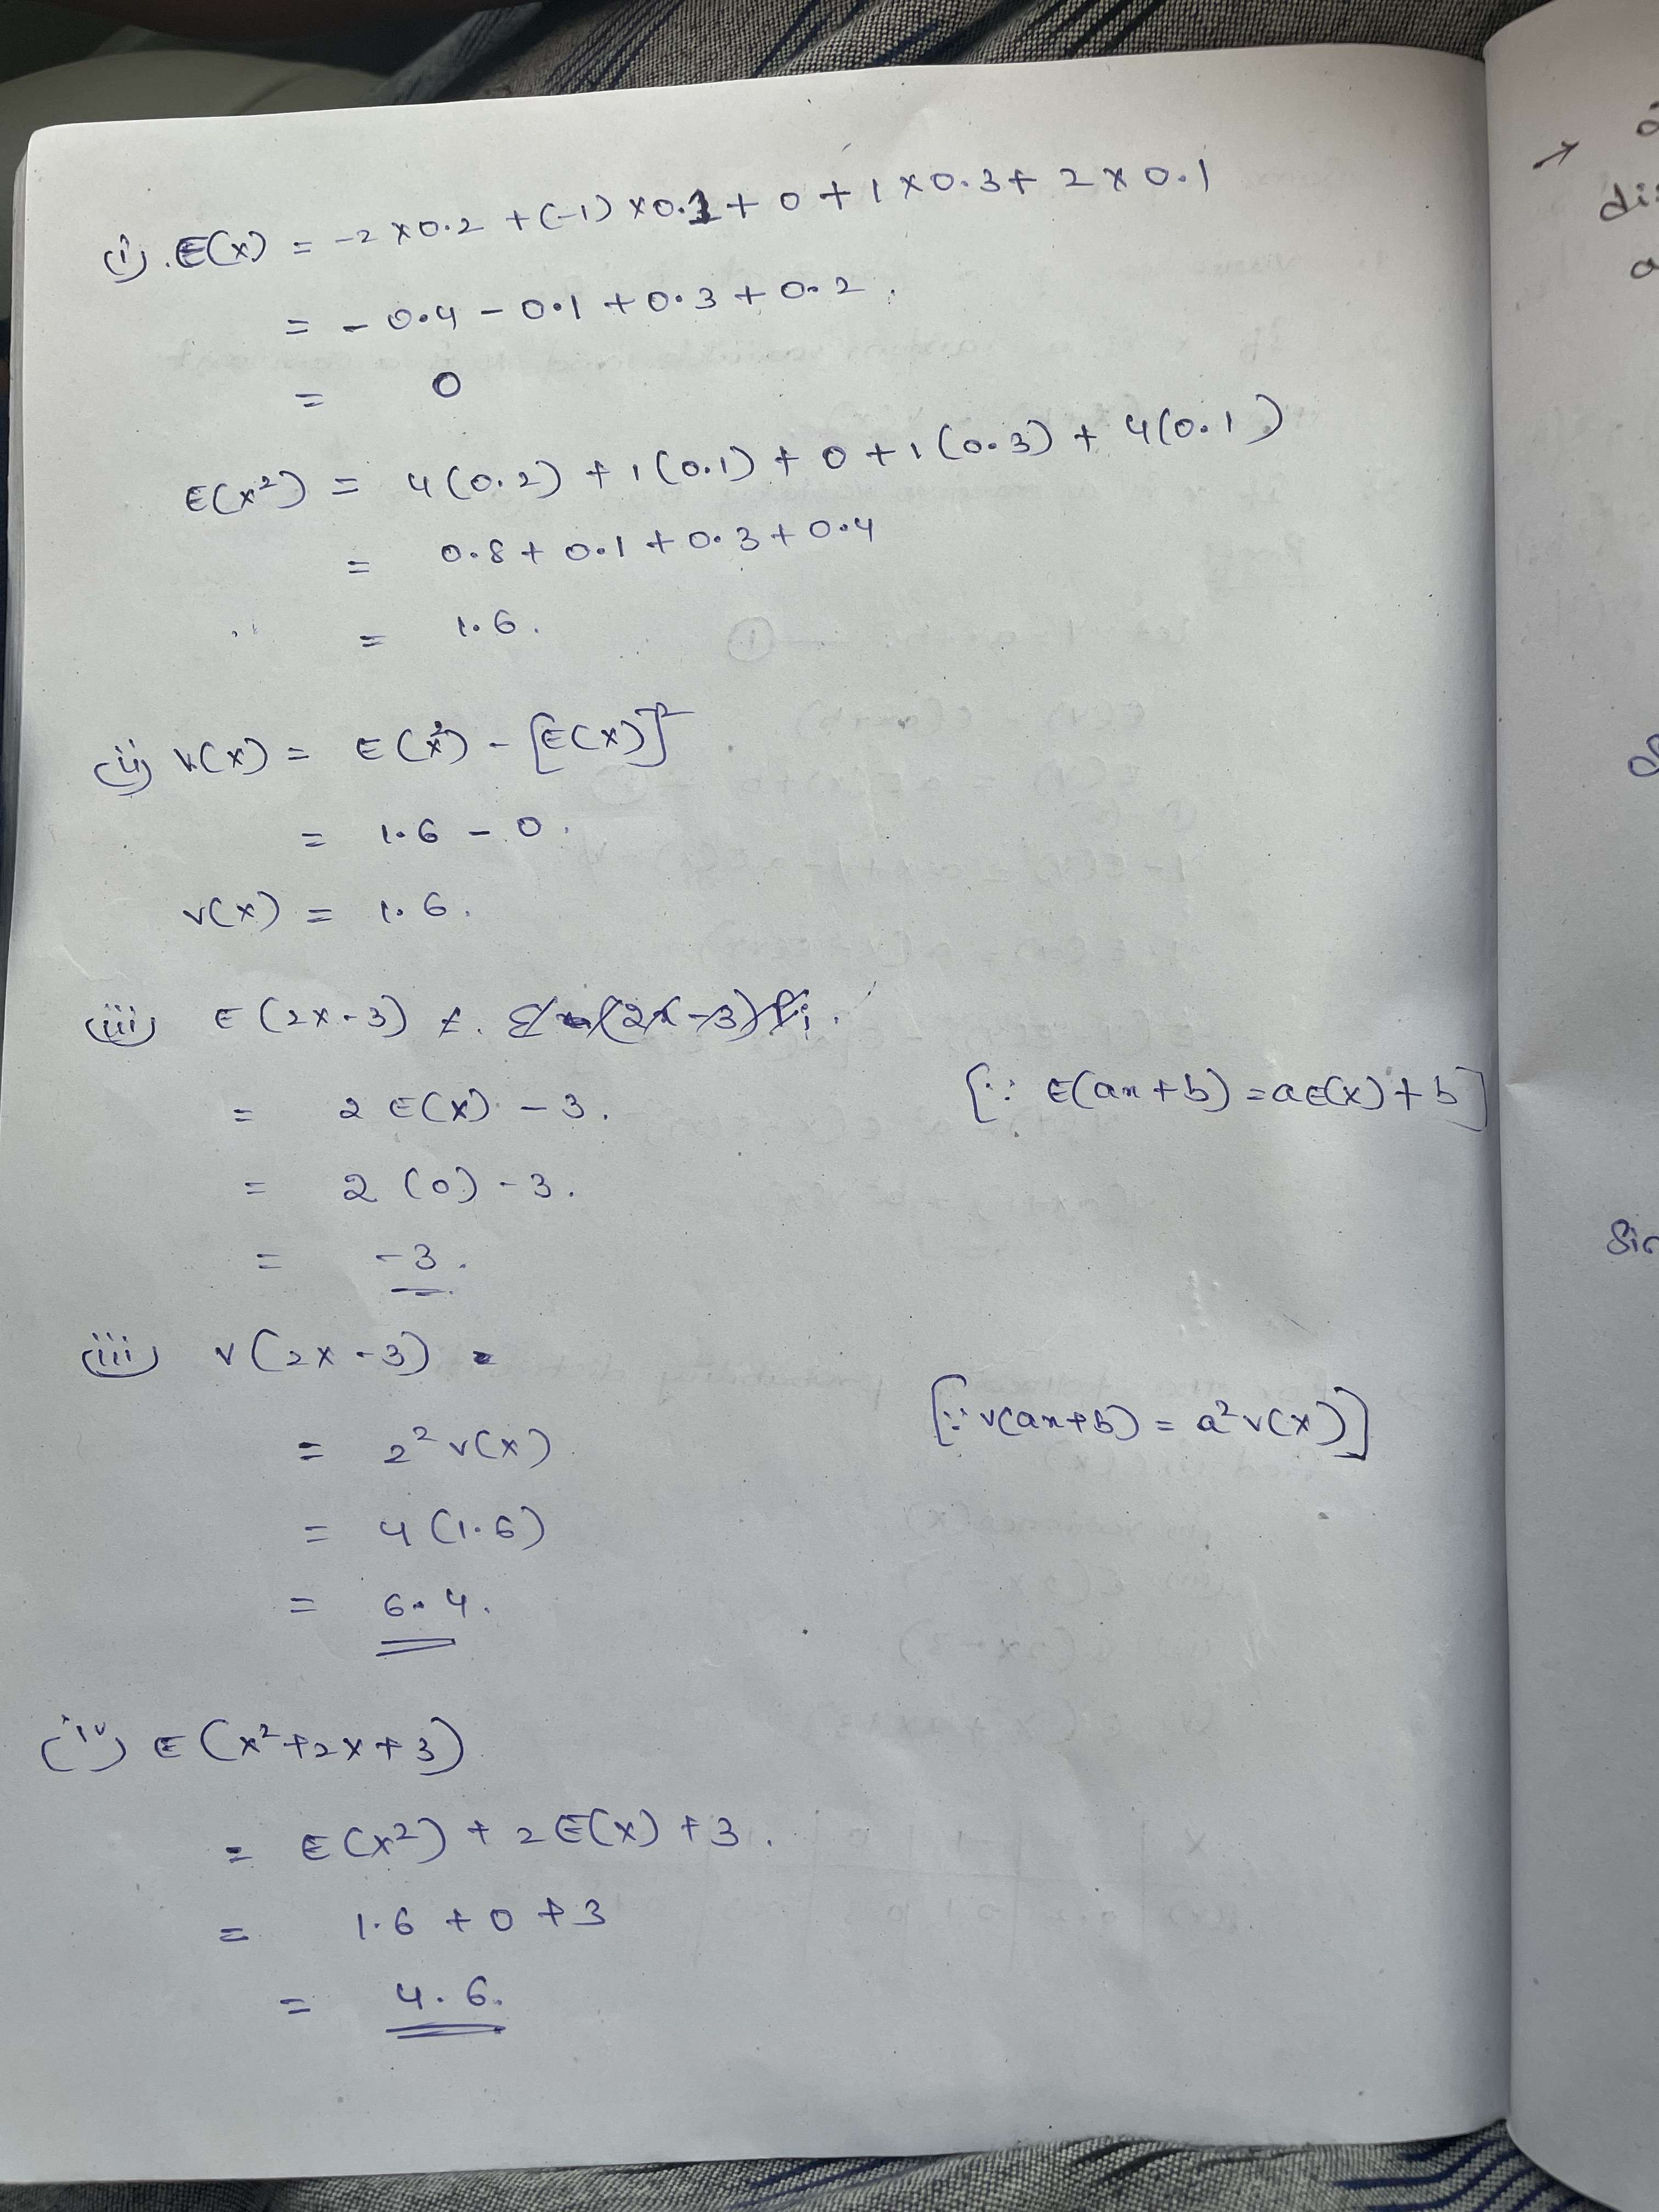 (i). E(x) = -2 x 0.2 + (-1) x 0.1 + 0 + 1 x 0.3 + 2 x 0.1
= - 0.4 - 0.1 + 0.3 + 0.2.
= 0
E(x²) = 4(0.2) + 1(0.1) + 0 + 1(0.3) + 4(0.1)
= 0.8 + 0.1 + 0.3 + 0.4
= 1.6.
(ii) V(x) = E(x²) - [E(x)]²
= 1.6 - 0.
v(x) = 1.6.
(iii) E(2x-3)
= 2 E(x) - 3. [∵ E(ax+b) = aE(x)+b]
= 2 (0) - 3.
= -3.
(iii) v(2x-3) =
= 2² v(x) [∵ v(ax+b) = a² v(x)]
= 4(1.6)
= 6.4.
(iv) E(x²+2x+3)
= E(x²) + 2E(x) + 3.
= 1.6 + 0 + 3
= 4.6.
→
Sin